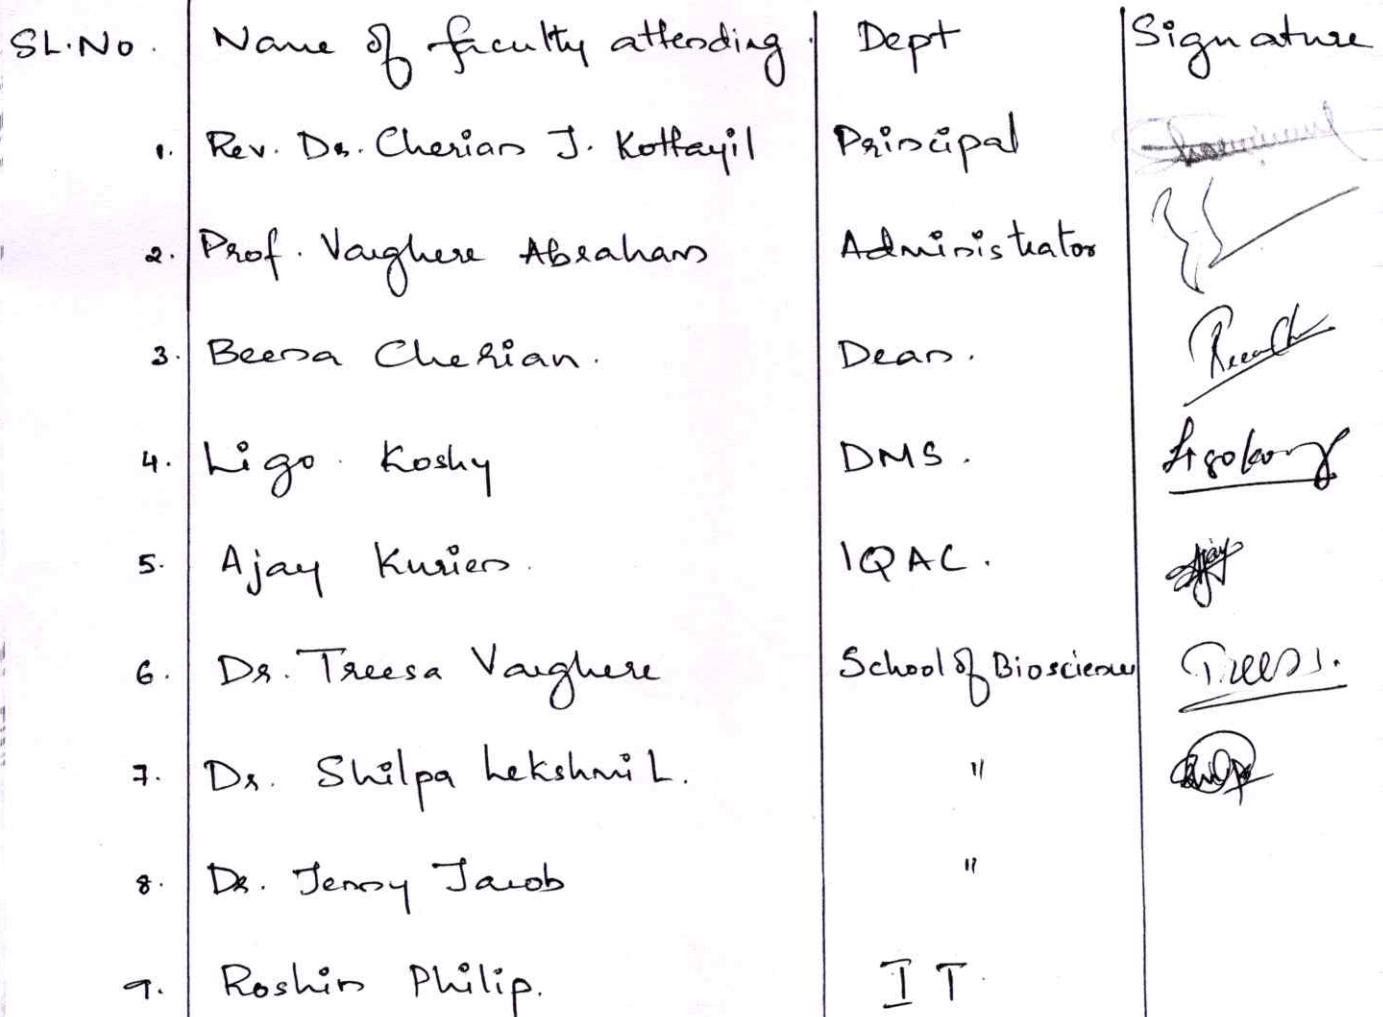 SL.No. Name of faculty attending. Dept Signature
1. Rev. Dr. Cherian J. Kottayil Principal
2. Prof. Varghese Abraham Administrator
3. Beena Cherian. Dean.
4. Ligo Koshy DMS.
5. Ajay Kurien. IQAC. Ajay
6. Dr. Treesa Varghese School of Bioscience Treesa.
7. Dr. Shilpa Lekshmi L. "
8. Dr. Jenny Jacob "
9. Roshin Philip. IT.